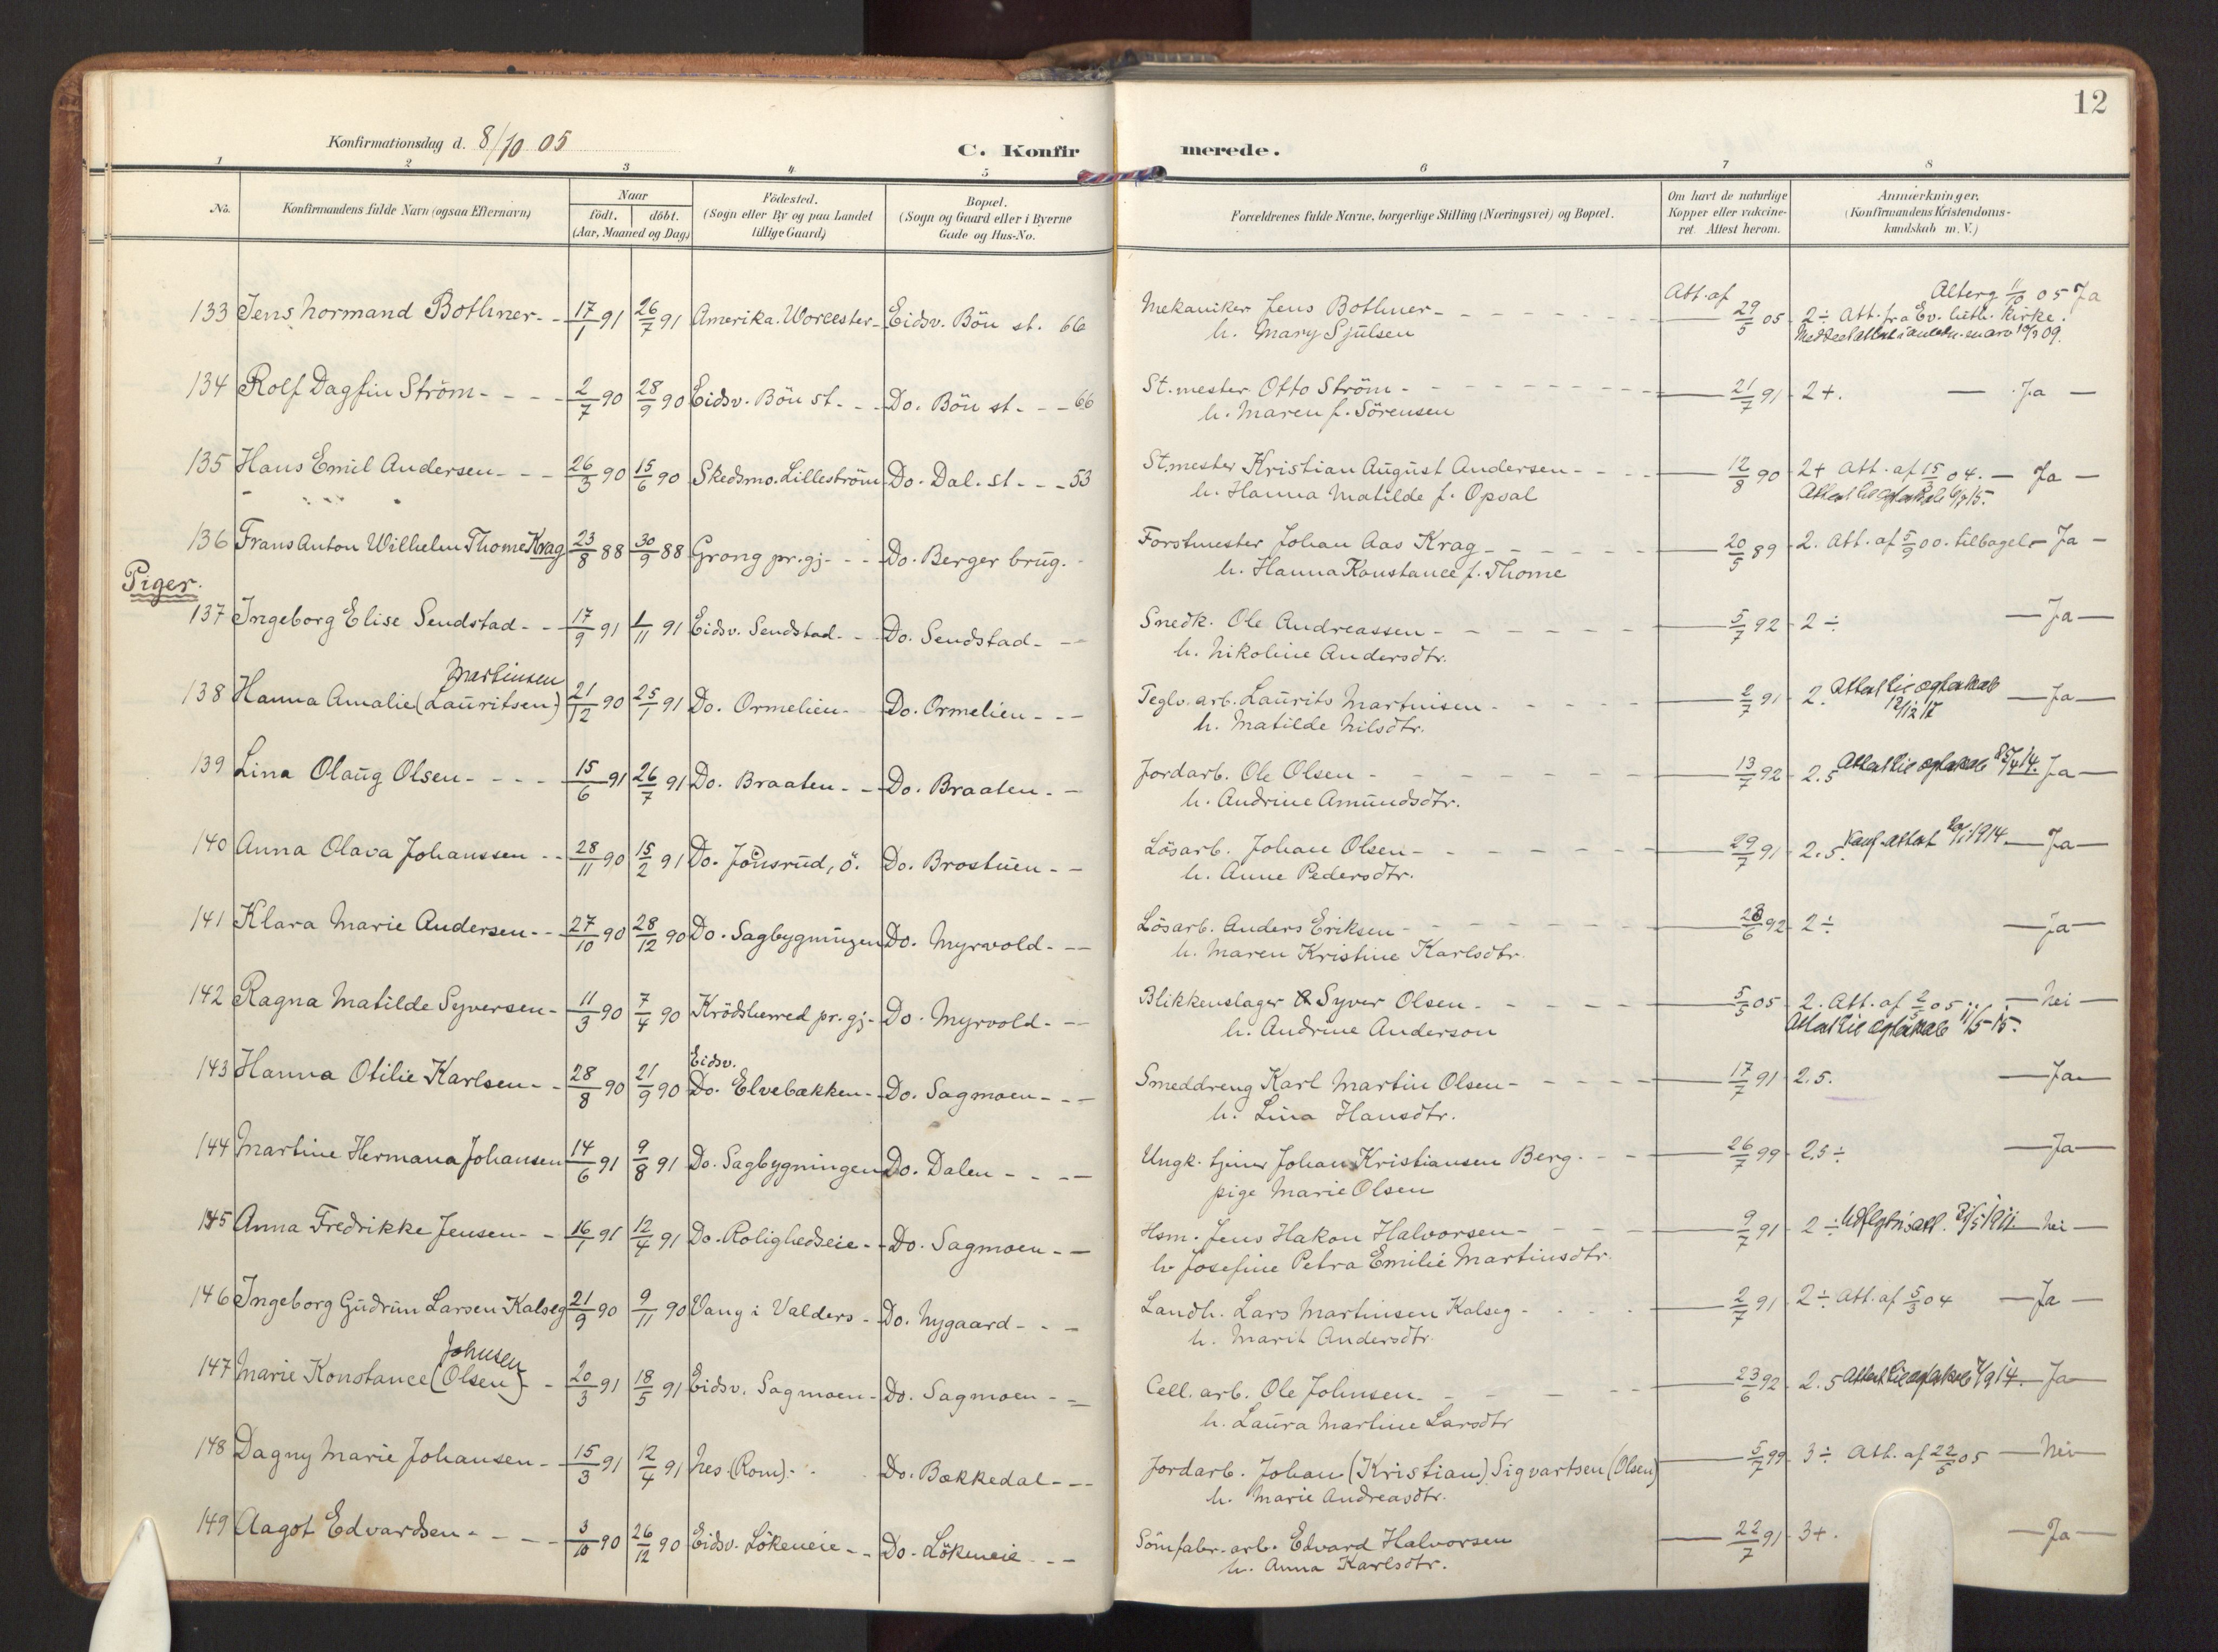 12
Konfirmationsdag d. 8/10 05
C. Konfirmerede.
1 2 3 4 5 6 7 8
No.
Konfirmandens fulde Navn (ogsaa Efternavn)
Naar
födt. döbt.
(Aar, Maaned og Dag)
Födested.
(Sogn eller By og paa Landet
tillige Gaard)
Bopæl.
(Sogn og Gaard eller i Byerne
Gade og Hus-No.
Forældrenes fulde Navne, borgerlige Stilling (Næringsvei) og Bopæl.
Om havt de naturlige
Kopper eller vakcine-
ret. Attest herom.
Anmærkninger,
(Konfirmandens Kristendoms-
kundskab m. V.)
Att. af Alterg 11/10 05 Ja
133 Jens Normand Bothner - - 17/1 91 26/7 91 Amerika. Worcester - Eidsv. Bön st. 66 Mekaniker Jens Bothner - 29/5 05 2 ÷ Att. fra Ev. luth. Kirke.
h. Mary Sjulsen
134 Rolf Dagfin Ström - - - 2/7 90 28/9 90 Eidsv. Bön st. - - Do. Bön st. - - 66 St.mester Otto Ström - 21/7 91 2+. — Ja —
h. Maren f. Sörensen
135 Hans Emil Andersen - - - 26/3 90 15/6 90 Skedsmo. Lilleström Do. Dal. st. - - 53 St.mester Kristian August Andersen - 12/8 90 2+ Att. af 15/3 04. — Ja —
h. Hanna Matilde f. Opsal
136 Frans Anton Wilhelm Thome Krag 23/8 88 30/9 88 Grong pr.gj. - - Do. Berger brug. Forstmester Johan Aas Krag - 20/5 89 2. Att. af 5/9 00. tilbagel. - Ja -
h. Hanna Konstance f. Thome
Piger.
137 Ingeborg Elise Sendstad - - 17/9 91 1/11 91 Eidsv. Sendstad - - Do. Sendstad - - Snedk. Ole Andreassen - 5/7 92 2 ÷ — Ja —
h. Nikoline Andersdtr.
Martinsen
138 Hanna Amalie (Lauritsen) 21/12 90 25/1 91 Do. Ormelien - Do. Ormelien - - - Teglv. arb. Laurits Martinisen - 2/7 91 2. Attest til ægteskab 12/12 17 — Ja —
h. Matilde Nilsdtr.
139 Lina Olaug Olsen - - - - 15/6 91 26/7 91 Do. Braaten - - Do. Braaten - - Jordarb. Ole Olsen - 13/7 92 2.5 Attest til ægteskab Ja —
h. Andrine Amundsdtr.
140 Anna Olava Johanssen - - 28/11 90 15/2 91 Do. Jönsrud, ö. Do. Brostuen - - Lösarb. Johan Olsen - 29/7 91 2.5. Konf. attest 1914 — Ja —
h. Anne Pedersdtr.
141 Klara Marie Andersen - - 27/10 90 28/12 90 Do. Sagbygningen Do. Myrvold - - - Lösarb. Anders Eriksen - 28/6 92 2 ÷ — Ja —
h. Maren Kristine Karlsdtr.
142 Ragna Matilde Syversen - 11/3 90 7/4 90 Krödsherred pr.gj. - Do. Myrvold - - Blikkenslager Syver Olsen - 5/5 05 2. Att. af 2/5 05 — Nei —
h. Andrine Anderson Attest til ægteskab 11/5 15.
Eidsv.
143 Hanna Otilie Karlsen - - 28/8 90 21/9 90 Do. Elvebækken - - Do. Sagmoen - - - Smeddreng Karl Martin Olsen - 17/7 91 2.5. — Ja —
h. Lina Hansdtr.
144 Martine Hermana Johansen 14/6 91 9/8 91 Do. Sagbygningen Do. Dalen - - - Ungk. tjener Johan Kristiansen Berg - 26/7 99 2.5 ÷ — Ja —
pige Marie Olsen
145 Anna Fredrikke Jensen - - 16/1 91 12/4 91 Do. Rolighedseie - - Do. Sagmoen - - Hsm. Jens Hakon Halvorsen - 9/7 91 2 ÷ 1911 — Nei —
h. Josefine Petra Emilie Martinsdtr.
146 Ingeborg Gudrun Larsen Kalseg 21/9 90 9/11 90 Vang i Valders - Do. Nygaard - - - Landh. Lars Martinsen Kalseg - 2/7 91 2 ÷ Att. af 5/3 04 — Ja —
h. Marit Andersdtr.
Johnsen
147 Marie Konstance (Olsen) - - 20/3 91 18/5 91 Eidsv. Sagmoen - Do. Sagmoen - - Cell. arb. Ole Johnsen - 23/6 92 2.5 Attest til ægteskab — Ja —
h. Laura Martine Larsdtr
148 Dagny Marie Johansen - - 15/3 91 12/4 91 Nes (Rom) - - Do. Bækkedal - - - Jordarb. Johan (Kristian) Sigvartsen (Olsen) 5/7 99 3 ÷ Att. af 22/5 05 — Nei —
h. Marie Andreasdtr.
149 Aagot Edvardsen - - - - 3/10 90 26/12 90 Eidsv. Lökeneie - - Do. Lökeneie - - - Sömfabr. arb. Edvard Halvorsen 22/7 91 3+. — Ja —
h. Anna Karlsdtr.